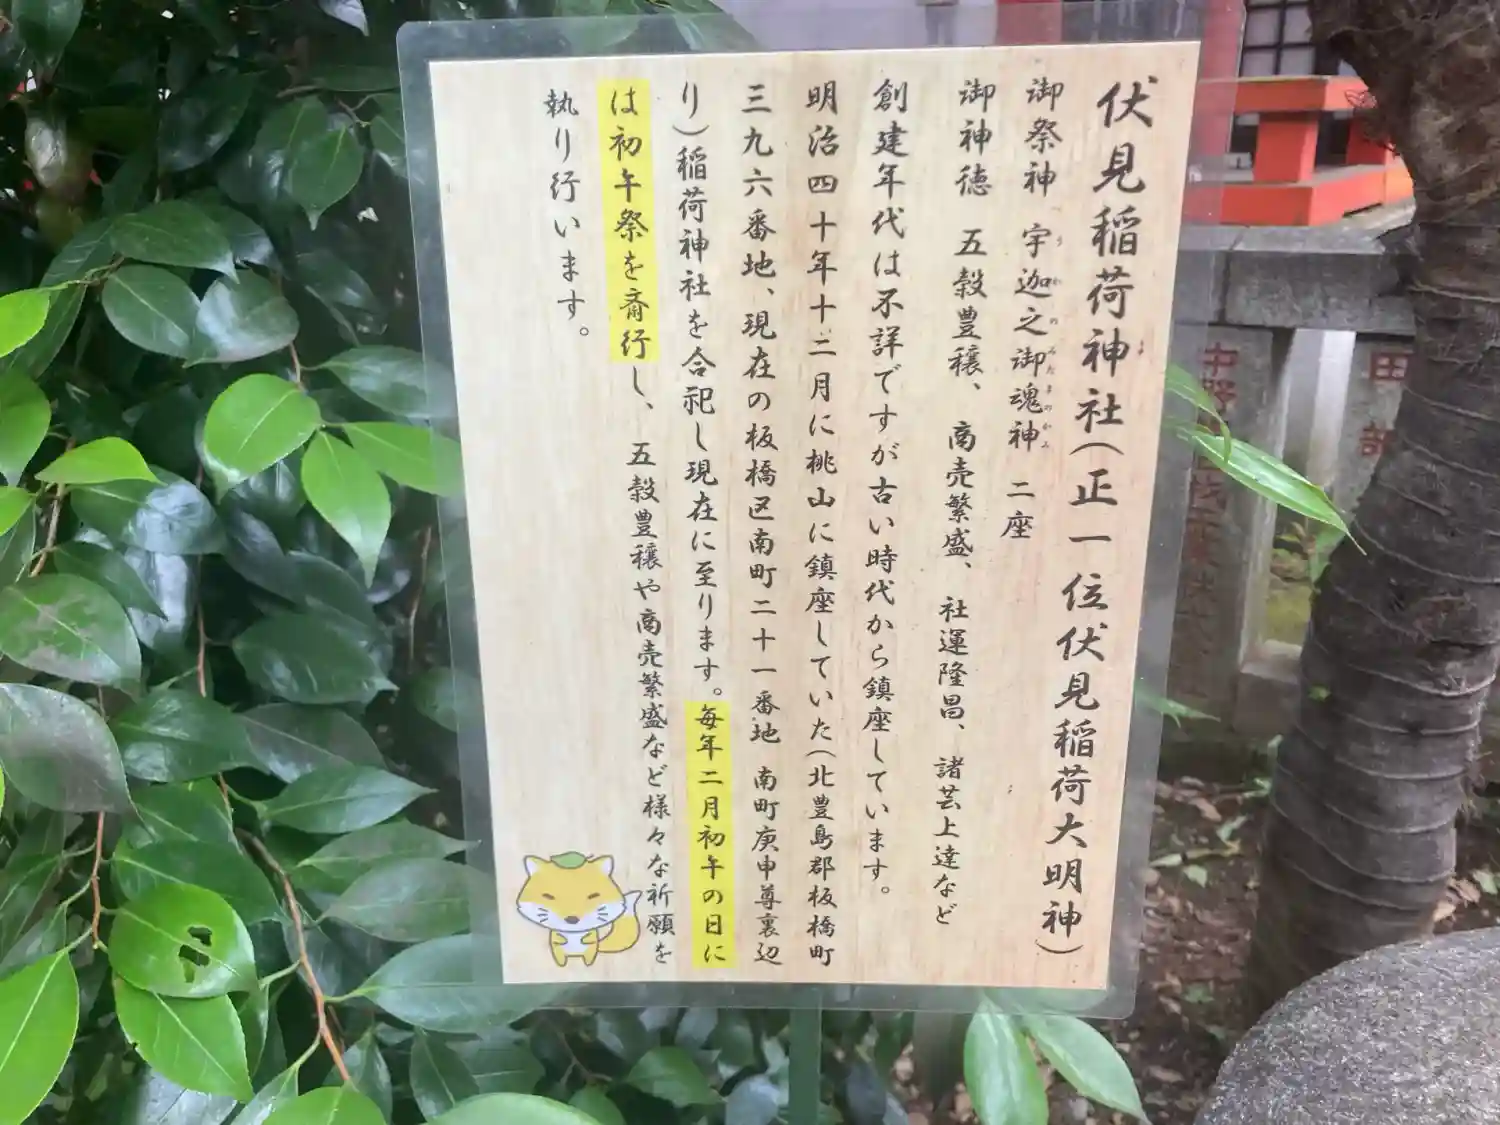 伏見稲荷神社（正一位伏見稲荷大明神）
御祭神 宇迦之御魂神 二座
御神徳 五穀豊穣、商売繁盛、社運隆昌、諸芸上達など
創建年代は不詳ですが古い時代から鎮座しています。
明治四十年十二月に桃山に鎮座していた（北豊島郡板橋町
三九六番地、現在の板橋区南町二十一番地 南町庚申尊裏辺
り）稲荷神社を合祀し現在に至ります。毎年二月初午の日に
は初午祭を斎行し、五穀豊穣や商売繁盛など様々な祈願を
執り行います。